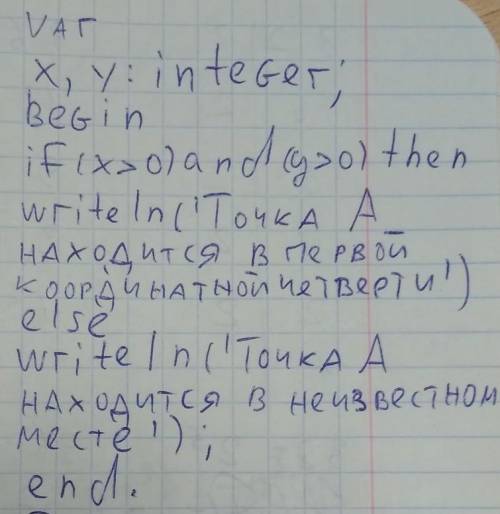 var
x, y: integer;
begin
if (x>0) and (y>0) then
writeln('Точка А
находится в первой
координатной четверти')
else
writeln('Точка А
находится в неизвестном
месте');
end.